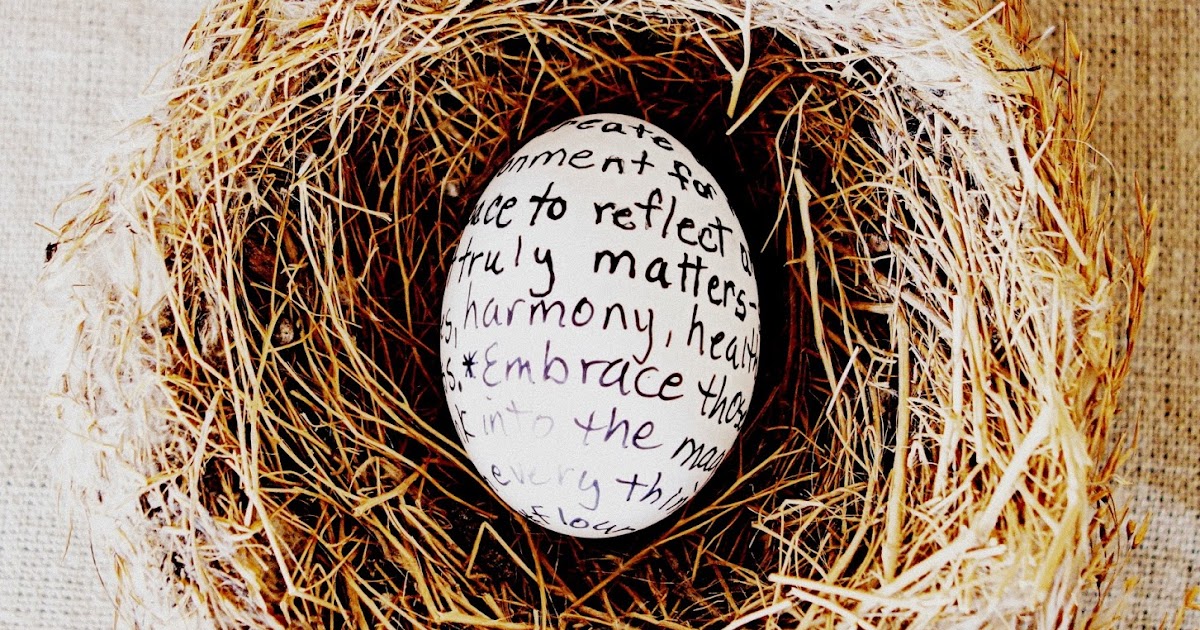 reate
onment for
ace to reflect
truly matters-
s, harmony, healt
s. *Embrace thos
k into the mag
every thin
flour